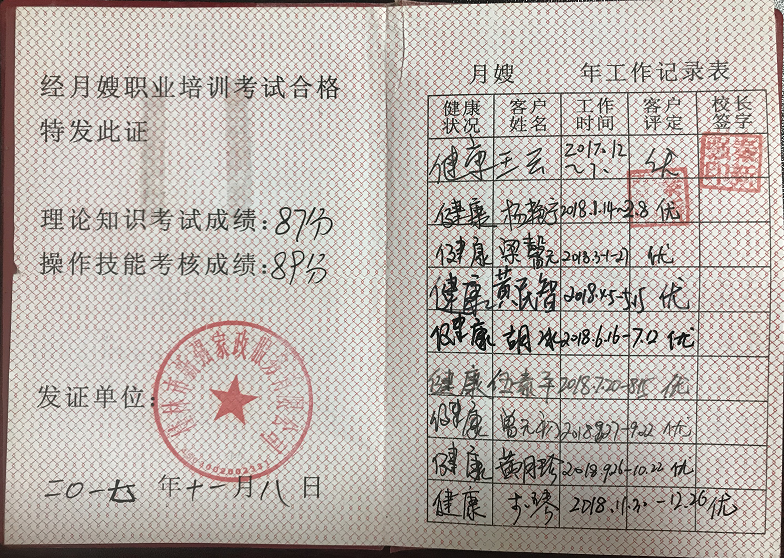 经月嫂职业培训考试合格
特发此证
理论知识考试成绩:87分
操作技能考核成绩:89分
发证单位:
家政服务有限公司
二〇一七年十一月八日
月嫂 年工作记录表
健康状况 客户姓名 工作时间 客户评定 校长签字
健康 王云 2017.12 优
健康 2018.1.14-2.8 优
健康 梁馨元 2018.3.1-21 优
健康 黄民智 2018.4.5-5.15 优
健康 胡冰 2018.6.16-7.12 优
健康 2018.7.20-8.15 优
健康 曾元 优
健康 黄月珍 2018.9.26-10.22 优
健康 2018.11.30-12.26 优